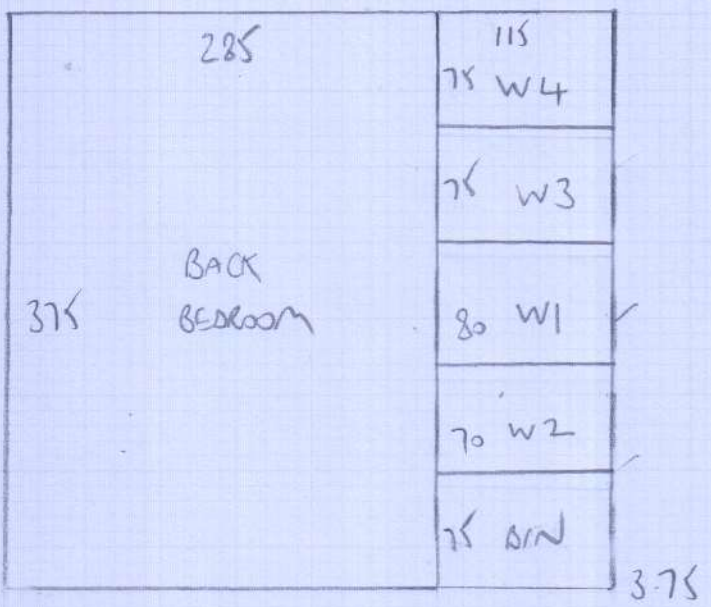 285
115
75 W4
75 W3
BACK
BEDROOM
375
80 W1
70 W2
75 BIN
3.75